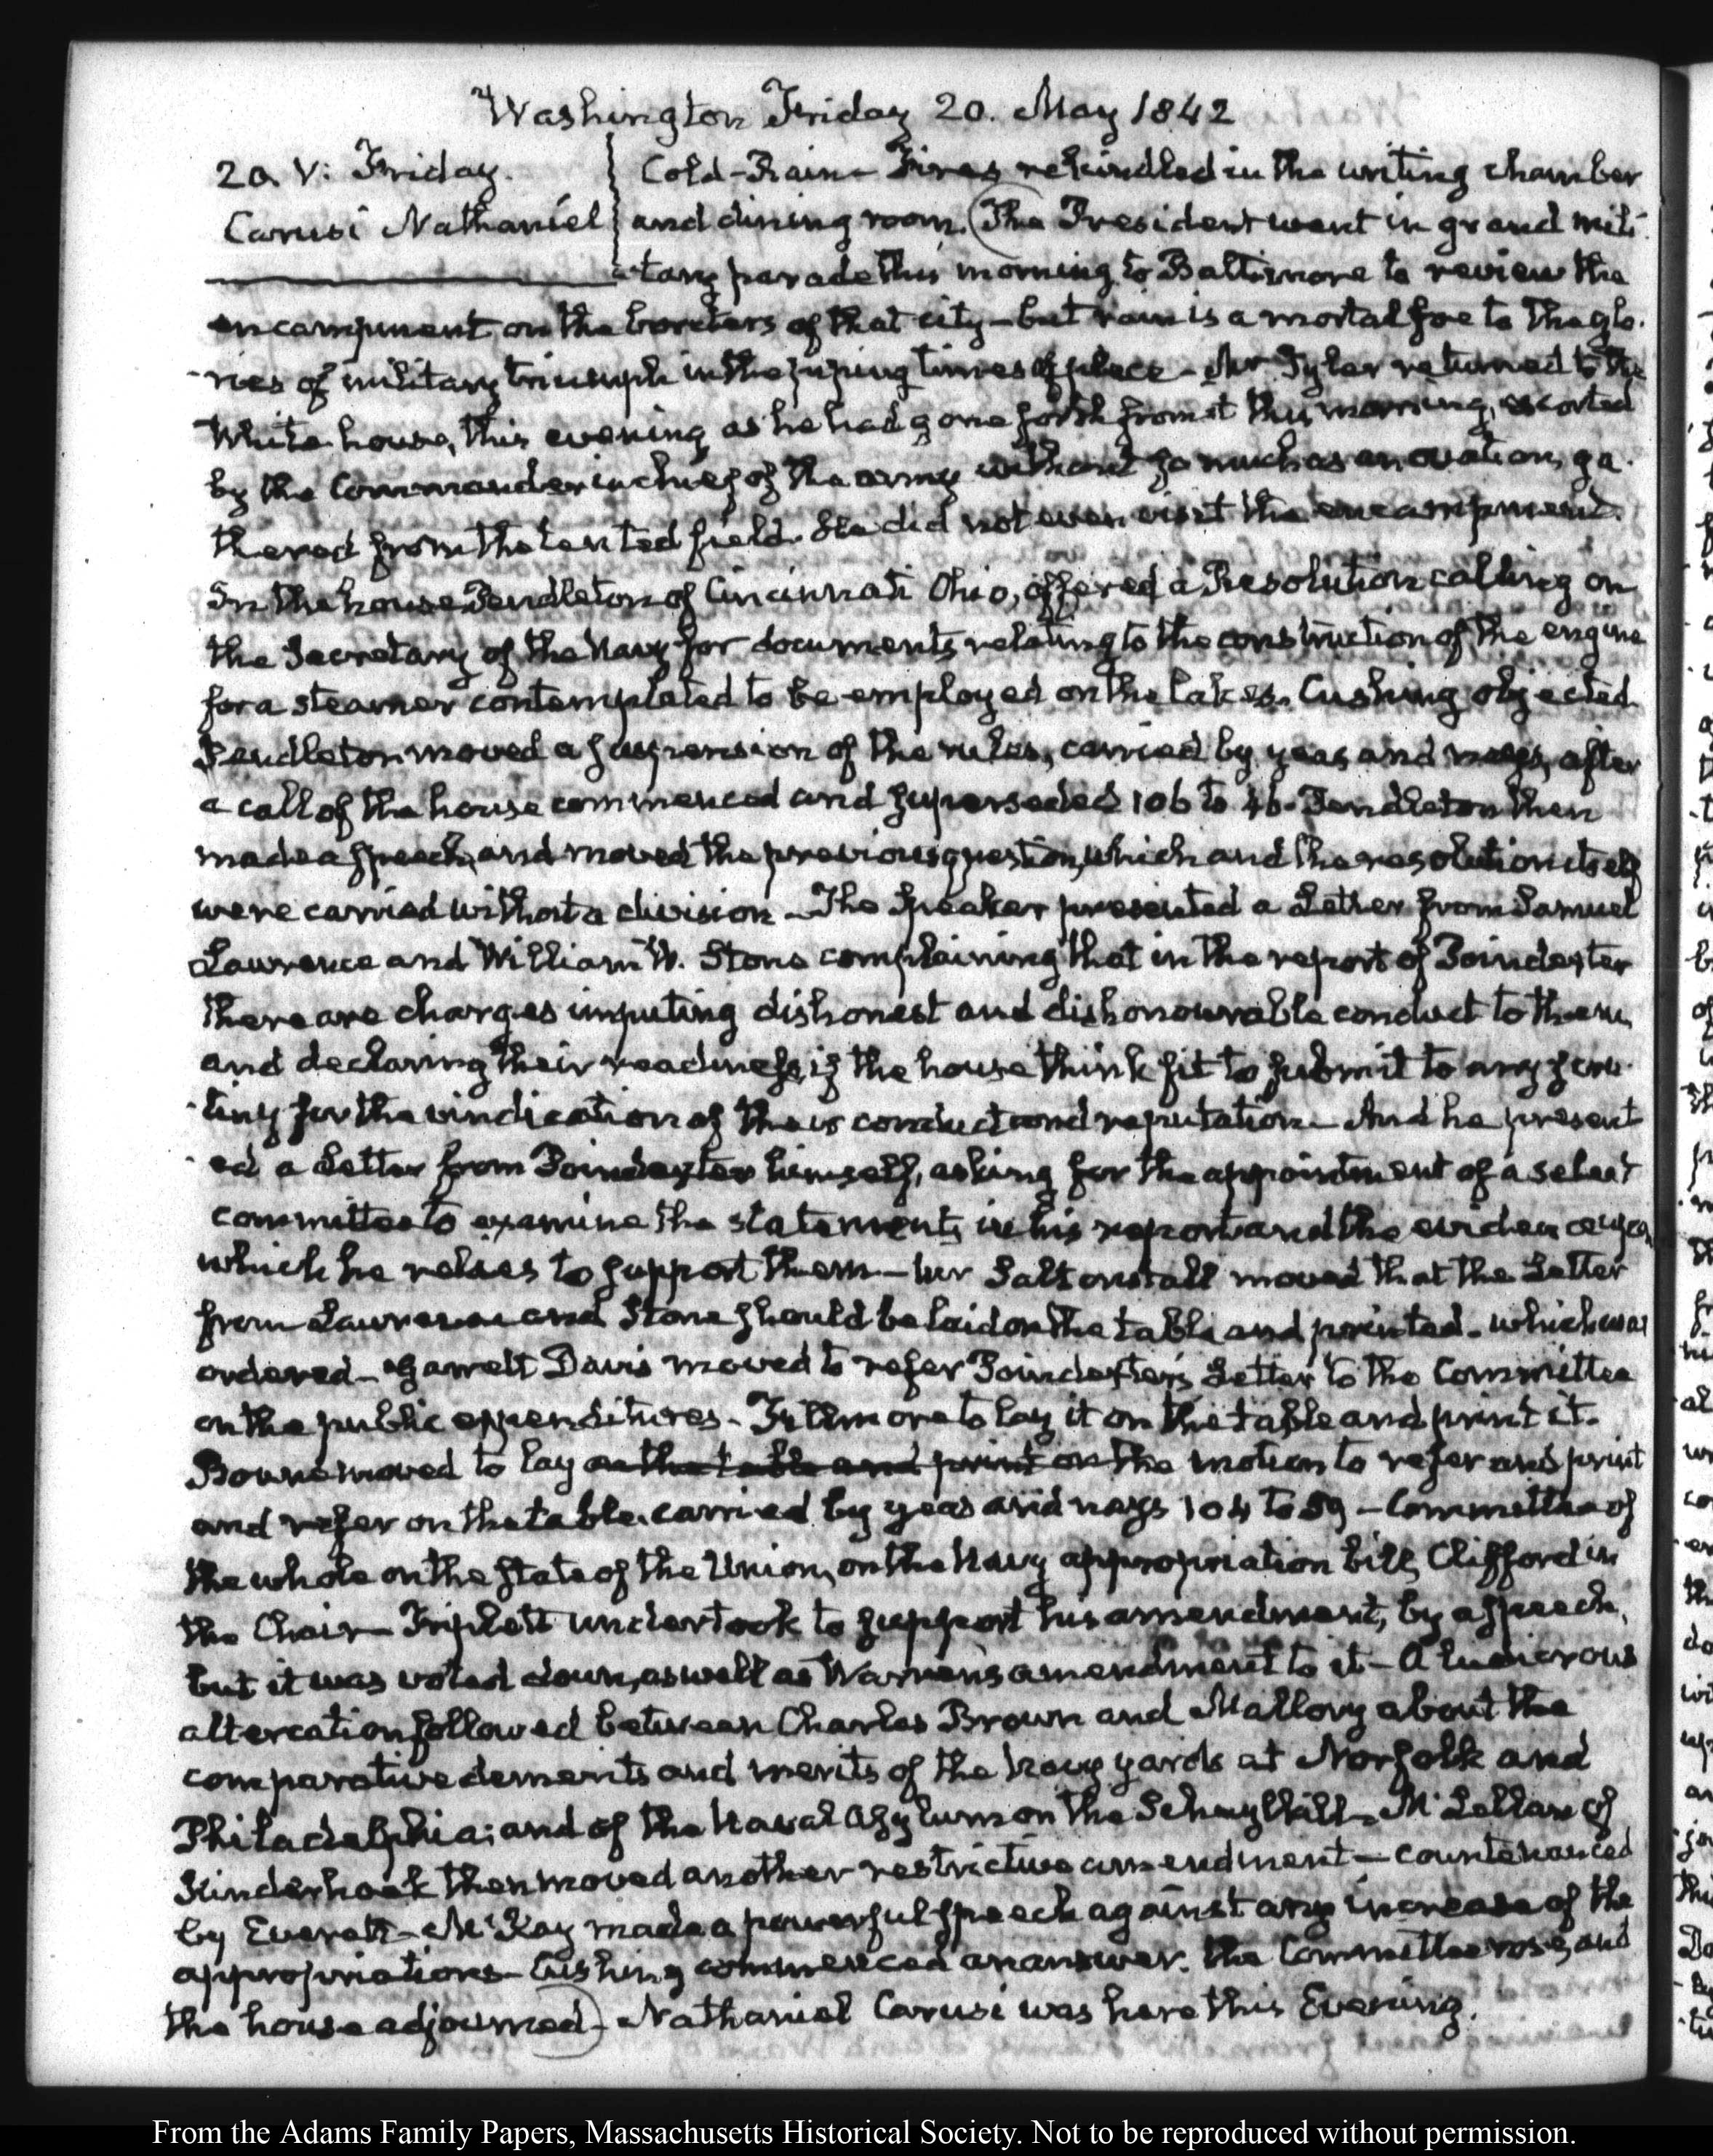 Washington Friday 20. May 1842
20. V: Friday.
Carusi Nathaniel
Cold-Rain- Fires rekindled in the writing chamber
and dining room. (The President went in grand mili-
-tary parade this morning to Baltimore to review the
encampment on the borders of that city - but rain is a mortal foe to the glo-
-ries of military triumph in the piping times of peace - Mr Tyler returned to the
White house, this evening as he had gone forth from it this morning, escorted
by the Commander in chief of the army without so much as an ovation, ga-
thered from the tented field. He did not even visit the encampment.
In the house Pendleton of Cincinnati Ohio, offered a Resolution calling on
the Secretary of the Navy for documents relating to the construction of the engine
for a steamer contemplated to be employed on the lakes. Cushing objected.
Pendleton moved a suspension of the rules, carried by yeas and nays, after
a call of the house commenced and superseded 106 to 46. Pendleton then
made a speech, and moved the previous question, which and the resolution itself
were carried without a division - The Speaker presented a Letter from Samuel
Lawrence and William W. Stone complaining that in the report of Poindexter
there are charges imputing dishonest and dishonourable conduct to them,
and declaring their readiness, if the house think fit to submit to any scru-
-tiny for the vindication of their conduct and reputation - And he present
-ed a Letter from Poindexter himself, asking for the appointment of a select
committee to examine the statements in his report and the evidence upon
which he relies to support them - Mr Saltonstall moved that the Letter
from Lawrence and Stone should be laid on the table and printed - which was
ordered - Garrett Davis moved to refer Poindexter's Letter to the Committee
on the public expenditures - Fillmore to lay it on the table and print it.
Bowne moved to lay on the table and print on the motion to refer and print
and refer on the table. carried by yeas and nays 104 to 59 - Committee of
the whole on the state of the Union, on the Navy appropriation bill, Clifford in
the Chair - Triplett undertook to support his amendment, by a speech,
but it was voted down, as well as Warren's amendment to it - A ludicrous
altercation followed between Charles Brown and Mallory about the
comparative demerits and merits of the navy yards at Norfolk and
Philadelphia; and of the Naval Asylum on the Schuylkill - McLellan of
Kinderhook then moved another restrictive amendment - countenanced
by Everett - McKay made a powerful speech against any increase of the
appropriations - Cushing commenced an answer. the Committee rose, and
the house adjourned) - Nathaniel Carusi was here this Evening.
From the Adams Family Papers, Massachusetts Historical Society. Not to be reproduced without permission.